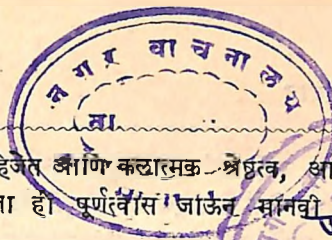 नगर वाचनालय
ता
हिजेत आणि कलात्मक श्रेष्ठत्व, आ
ता ही पूर्णत्वास जाऊन मानवी